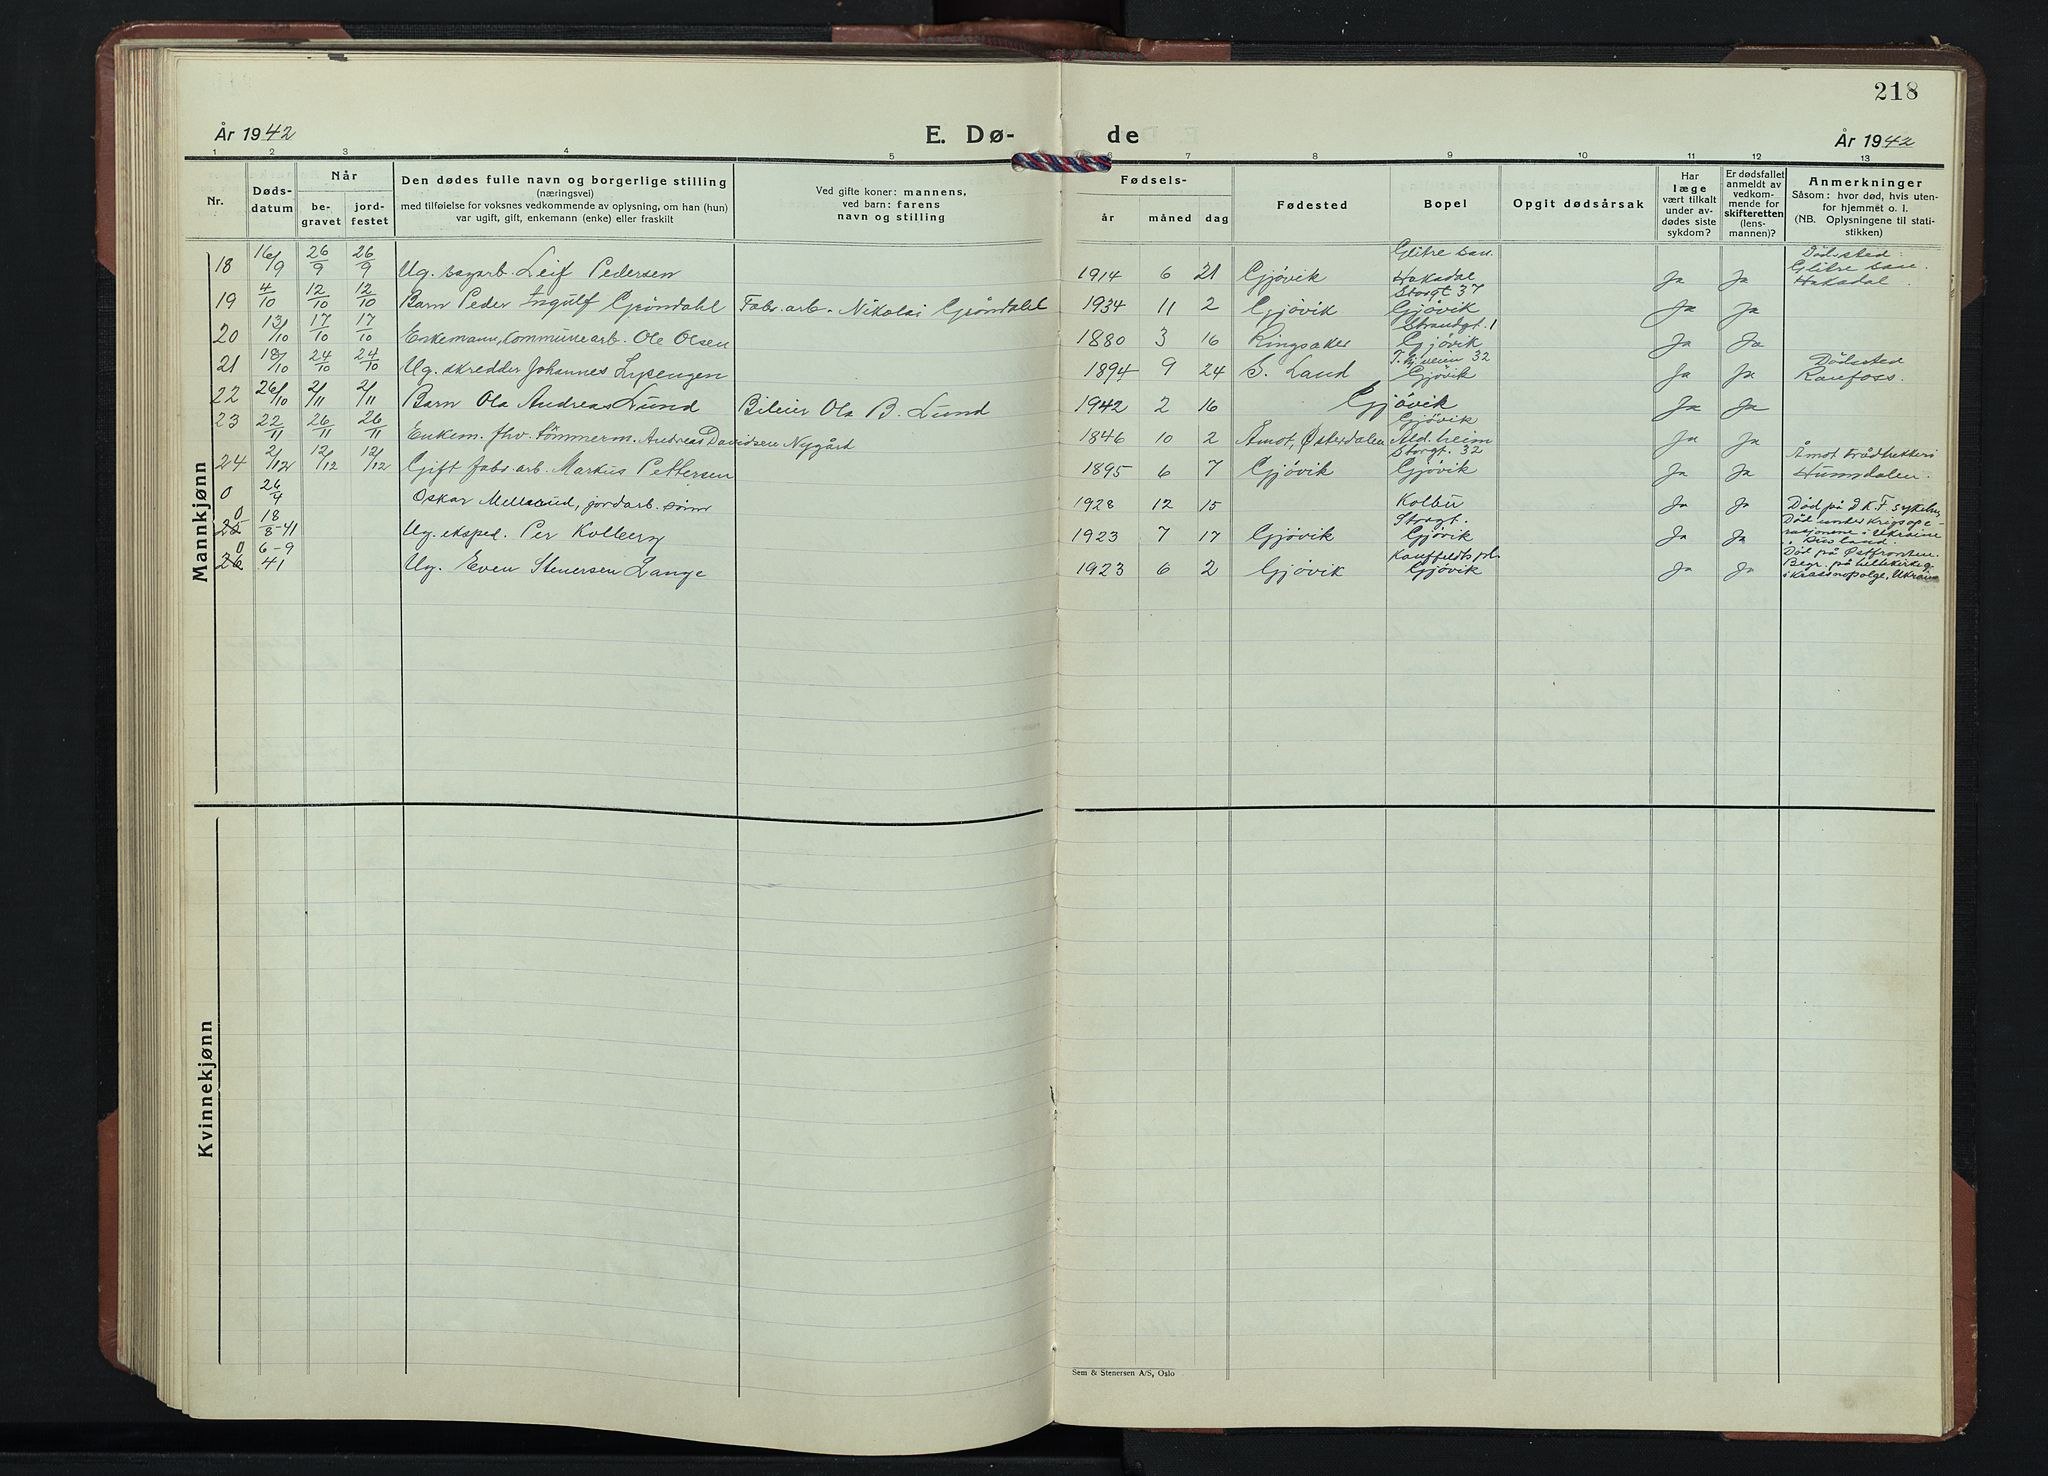 218
År 1942 E. Dø- de År 1942
1 2 3 4 5 6 7 8 9 10 11 12 13
Nr. Døds-datum Når be-gravet jord-festet
Den dødes fulle navn og borgerlige stilling
(næringsvei)
med tilføielse for voksnes vedkommende av oplysning, om han (hun)
var ugift, gift, enkemann (enke) eller fraskilt
Ved gifte koner: mannens,
ved barn: farens
navn og stilling
Fødsels-
år måned dag
Fødested
Bopel
Opgit dødsårsak
Har
læge
vært tilkalt
under av-
dødes siste
sykdom?
Er dødsfallet
anmeldt av
vedkom-
mende for
skifteretten
(lens-
mannen)?
Anmerkninger
Såsom: hvor død, hvis uten-
for hjemmet o. l.
(NB. Oplysningene til stati-
stikken)
Mannkjønn
18 16/9 26/9 26/9 Ug. sagarb. Leif Pedersen 1914 6 21 Gjövik Glitre san. Hakadal Ja Ja Dödssted: Glitre san. Hakadal.
19 4/10 12/10 12/10 Barn Peder Ingulf Gröndahl Fabr. arb. Nikolai Gröndahl 1934 11 2 Gjövik Storgt 37 Gjövik Ja Ja
20 13/10 17/10 17/10 Enkemann, kommunearb. Ole Olsen 1880 3 16 Ringsaker Strandgt. 1 Gjövik Ja Ja
21 18/10 24/10 24/10 Ug. skredder Johannes 1894 9 24 S. Land 32 Gjövik Ja Ja Dödssted Raufoss.
22 26/10 2/11 2/11 Barn Ola Andreas Lund Bileier Ola B. Lund 1942 2 16 Gjövik Ja Ja
23 22/11 26/11 26/11 Enkem. fhv. tömmerm. Andreas Davidsen Nygård 1846 10 2 Åmot, Østerdalen Gjövik Ald. heim Ja Ja
24 2/12 12/12 12/12 Gift fabr. arb. Markus Pettersen 1895 6 7 Gjövik Storgt. 32 Gjövik Ja Ja Åmot trådtrekkeri Hunndalen.
0 26/4 Oskar jordarb. sønn 1928 12 15 Kolbu Ja Ja Död på D.K.F. sykehus
0 25 18/8-41 Ug. eksped. Per Kolberg 1923 7 17 Gjövik Storgt. Gjövik Ja Ja Död under krigsope-rasjonene i Ukraine i Russland.
0 26 6-9 41 Ug. Even Stenersen Lange 1923 6 2 Gjövik Kauffeldts pl. Gjövik Ja Ja Död på Østfronten. Begr. på heltekirkeg. i Krassnopolge, Ukraina
Kvinnekjønn
Sem & Stenersen A/S, Oslo